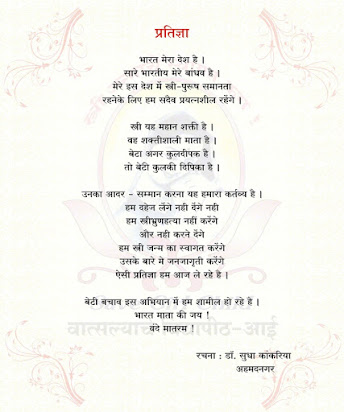 प्रतिज्ञा
भारत मेरा देश है ।
सारे भारतीय मेरे बांधव है ।
मेरे इस देश में स्त्री-पुरूष समानता
रहनेके लिए हम सदैव प्रयत्नशील रहेंगे ।
स्त्री यह महान शक्ती है ।
वह शक्तीशाली माता है ।
बेटा अगर कुलदीपक है ।
तो बेटी कुलकी दिपिका है ।
उनका आदर - सम्मान करना यह हमारा कर्तव्य है ।
हम दहेज लेंगे नही देंगे नही
हम स्त्रीभ्रुणहत्या नहीं करेंगे
और नही करने देंगे
हम स्त्री जन्म का स्वागत करेंगे
उसके बारे मे जनजागृती करेंगे
ऐसी प्रतिज्ञा हम आज ले रहे है ।
बेटी बचाव इस अभियान में हम शामील हो रहे है ।
भारत माता की जय !
वंदे मातरम !
रचना : डॉ. सुधा कांकरिया
अहमदनगर